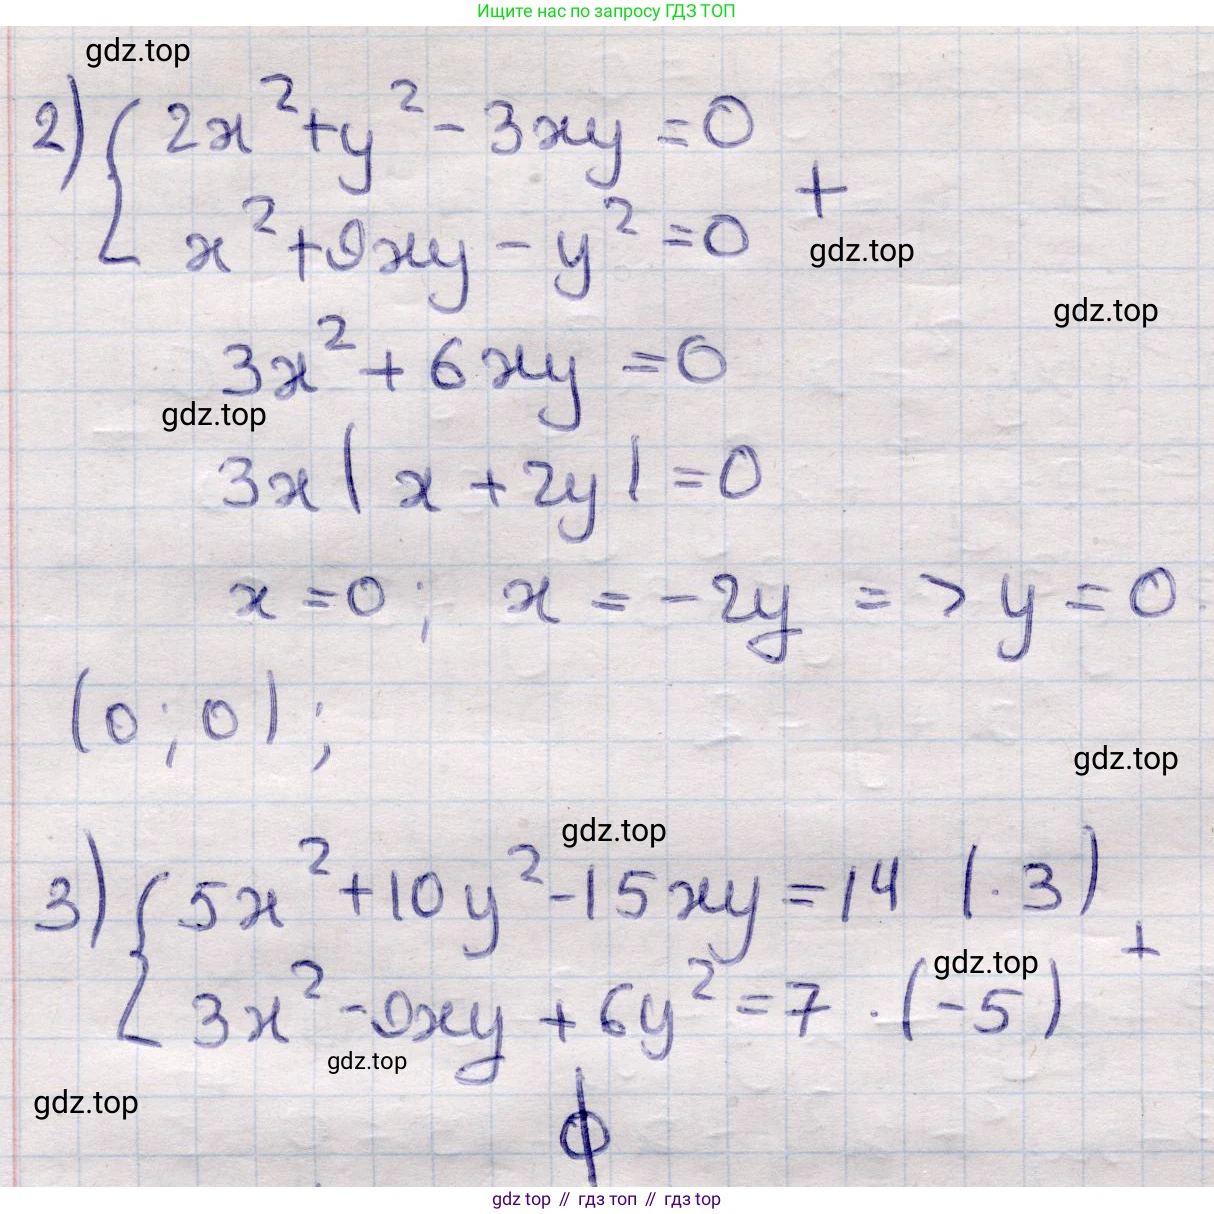 Ищите нас по запросу ГДЗ ТОП
gdz.top
2) { 2x² + y² - 3xy = 0
x² + 9xy - y² = 0 +
gdz.top
gdz.top
3x² + 6xy = 0
gdz.top
3x ( x + 2y ) = 0
x = 0 ; x = -2y => y = 0
(0 ; 0) ;
gdz.top
gdz.top
3) { 5x² + 10y² - 15xy = 14 (· 3)
3x² - 9xy + 6y² = 7 · (-5) +
gdz.top
gdz.top
gdz.top
ϕ
gdz top // гдз топ // gdz top